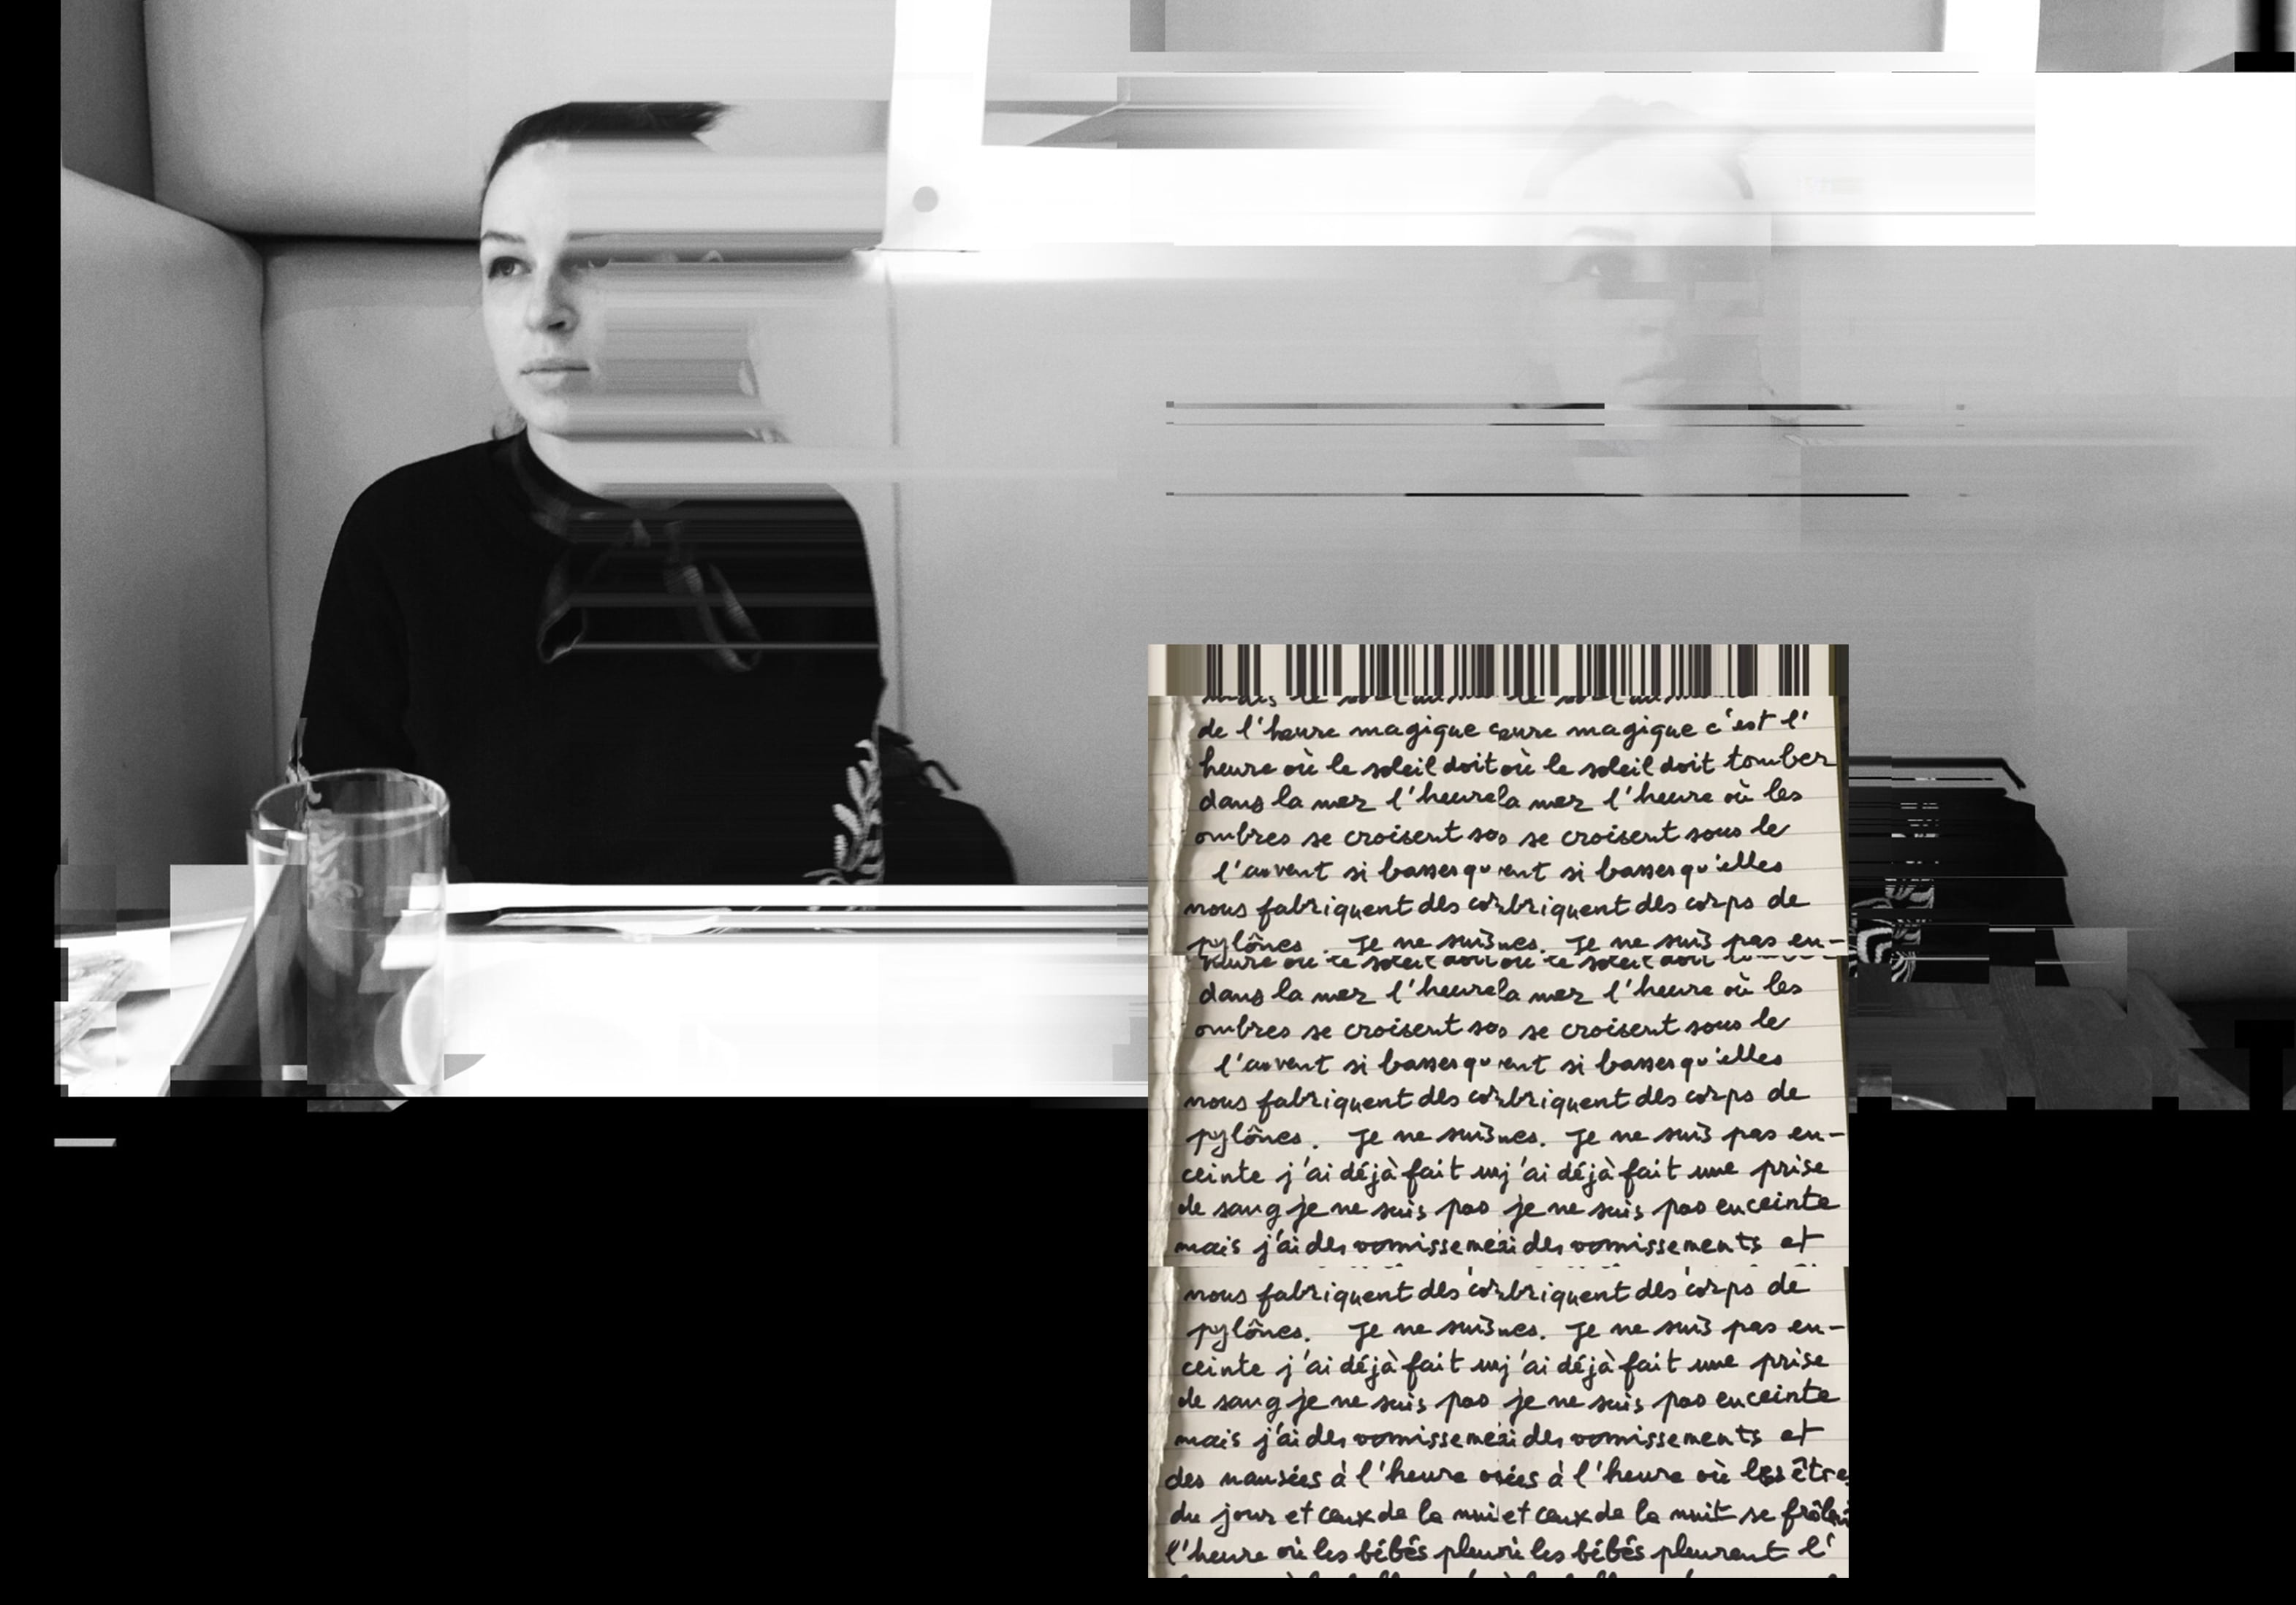 de l'heure magique eure magique c'est l'
heure où le soleil doit où le soleil doit tomber
dans la mer l'heure la mer l'heure où les
ombres se croisent so s se croisent sous le
l'auvent si basses qu' ent si basses qu'elles
nous fabriquent des corbriquent des corps de
pylônes. Je ne suisnes. Je ne suis pas en-
heure où le soleil doit où le soleil doit
dans la mer l'heure la mer l'heure où les
ombres se croisent so s se croisent sous le
l'auvent si basses qu' ent si basses qu'elles
nous fabriquent des corbriquent des corps de
pylônes. Je ne suisnes. Je ne suis pas en-
ceinte j'ai déjà fait unj'ai déjà fait une prise
de sang je ne suis pas je ne suis pas enceinte
mais j'ai des vomissemeai des vomissements et
nous fabriquent des corbriquent des corps de
pylônes. Je ne suisnes. Je ne suis pas en-
ceinte j'ai déjà fait unj'ai déjà fait une prise
de sang je ne suis pas je ne suis pas enceinte
mais j'ai des vomissemeai des vomissements et
des nausées à l'heure osées à l'heure où les êtres
du jour et ceux de la nuiet ceux de la nuit se frôlent
l'heure où les bébés pleurù les bébés pleurent l'